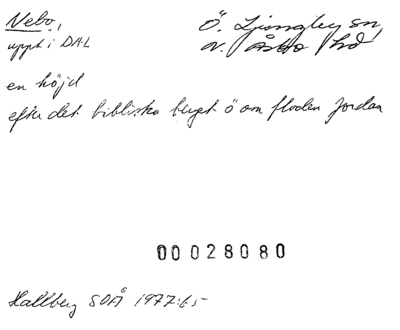 Nebo, Ö. Ljungby sn,
uppt i DAL N. Åsbo hd
en höjd
efter det bibliska berget ö om floden Jordan
00028080
Hallberg SOÅ 1977:65